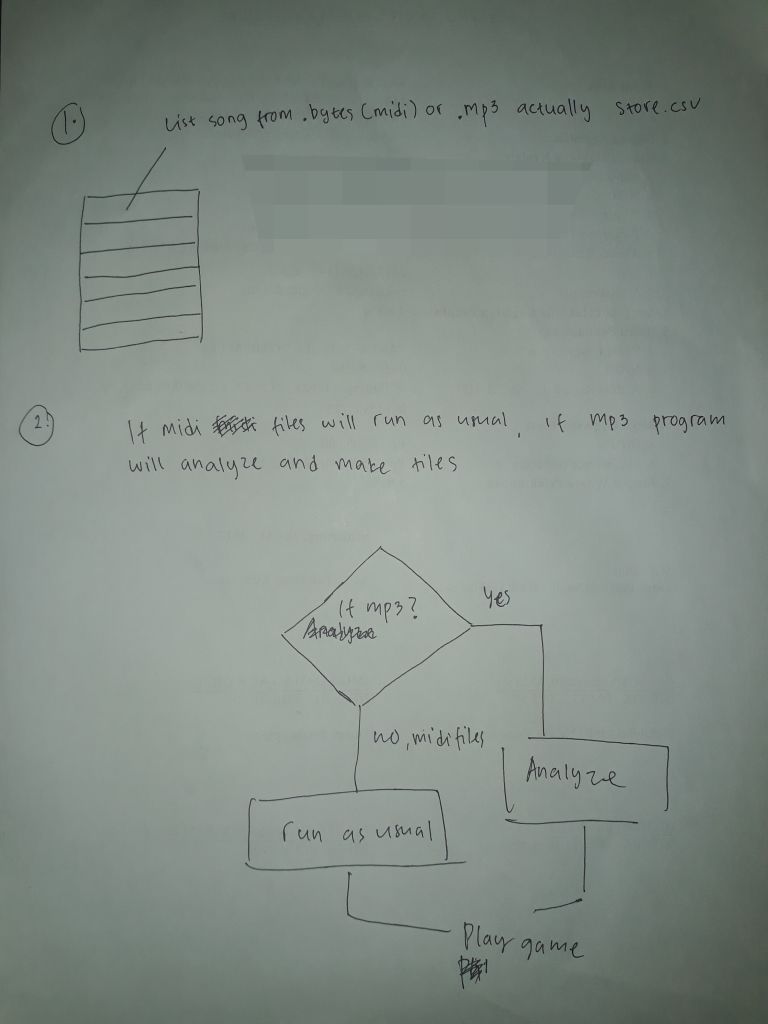 1.
List song from .bytes (midi) or .mp3 actually store.csv
2.
If midi files will run as usual, if mp3 program
will analyze and make tiles
If mp3?
Analyze
Yes
no, midi files
Analyze
run as usual
Play game